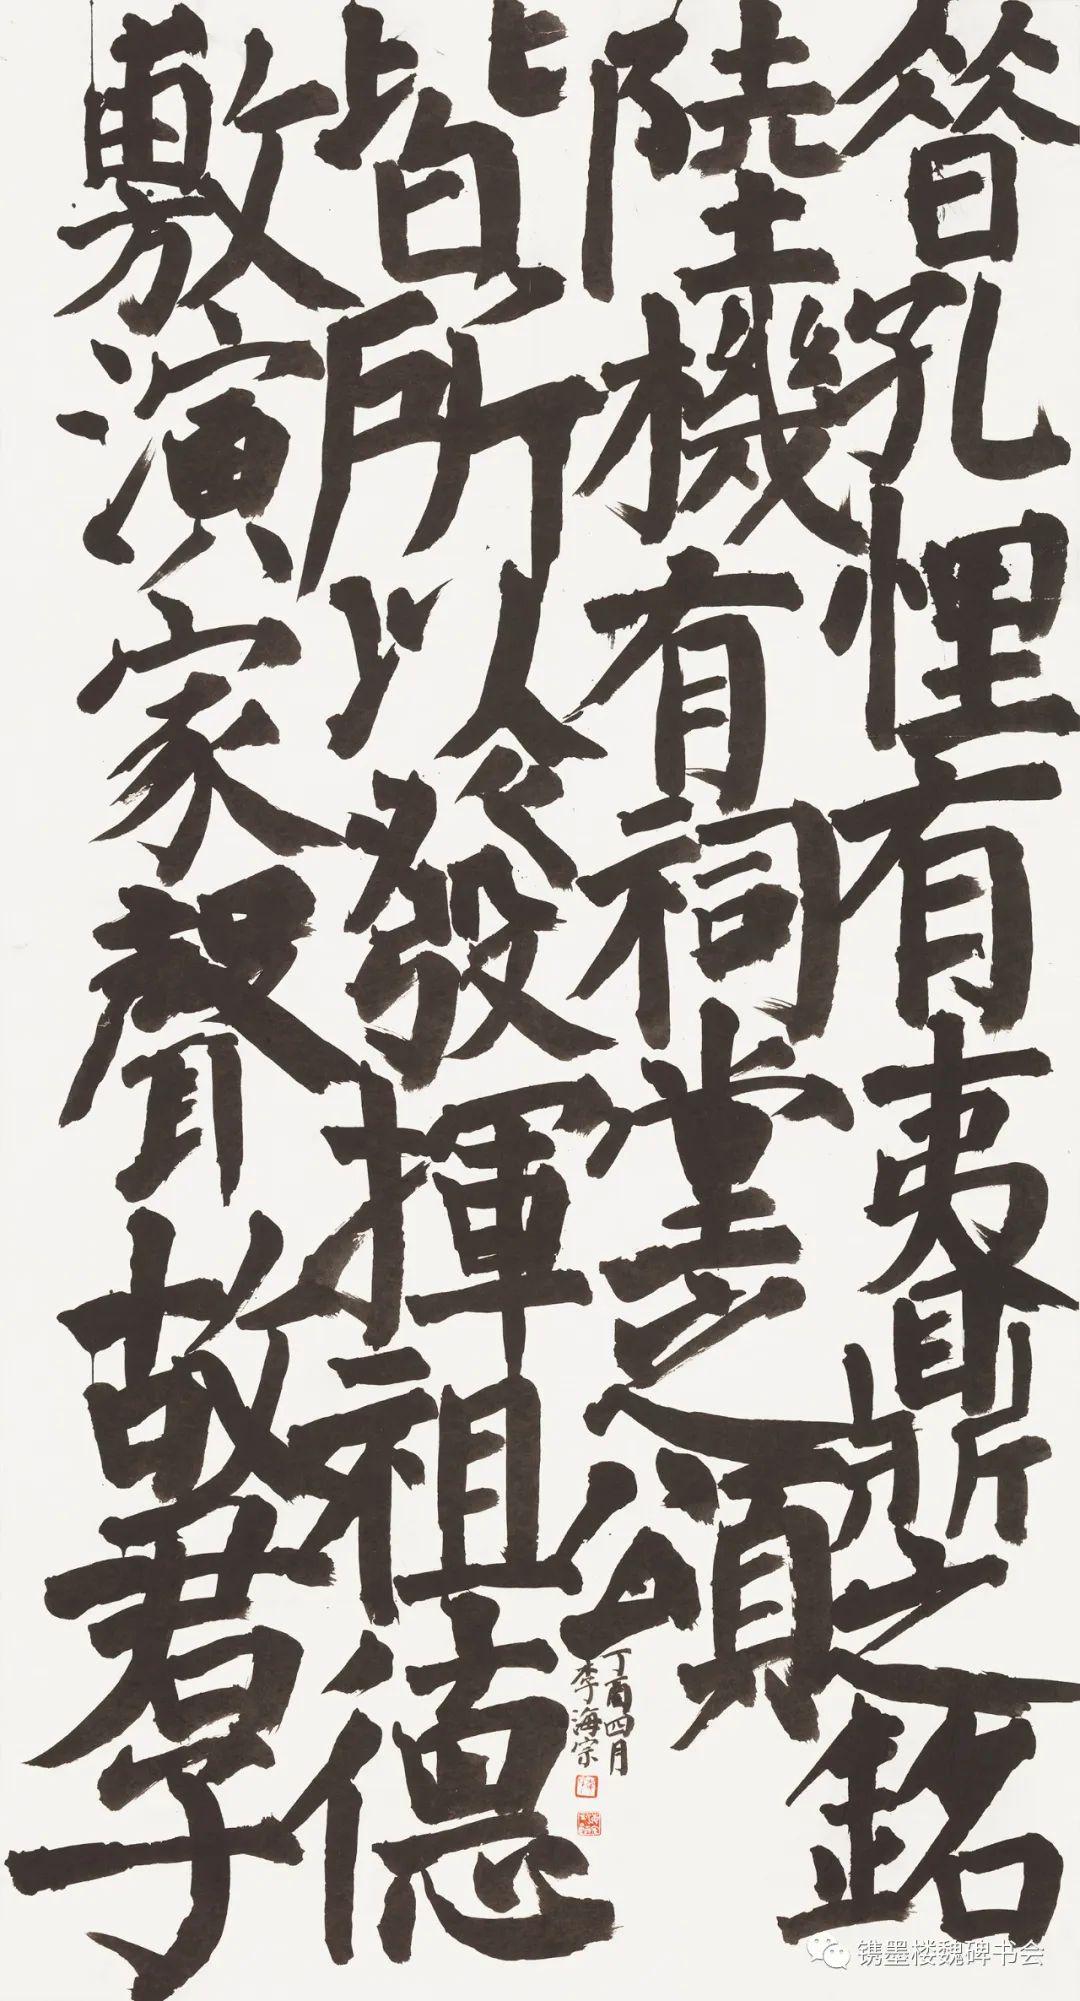 昔孔悝有夷鼎之銘
陸機有祠堂之頌
皆所以發揮祖德
敷演家聲故君子
丁酉四月
李海宗
镌墨楼魏碑书会